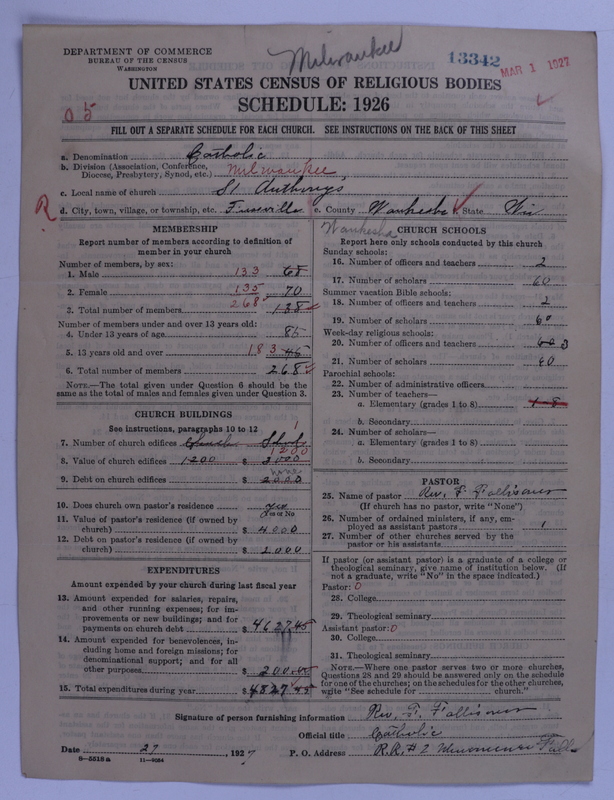 Milwaukee
DEPARTMENT OF COMMERCE
BUREAU OF THE CENSUS
WASHINGTON
13342
MAR 1 1927
UNITED STATES CENSUS OF RELIGIOUS BODIES
SCHEDULE: 1926
05
FILL OUT A SEPARATE SCHEDULE FOR EACH CHURCH. SEE INSTRUCTIONS ON THE BACK OF THIS SHEET
a. Denomination Catholic
b. Division (Association, Conference, Diocese, Presbytery, Synod, etc.) Milwaukee
c. Local name of church St Anthonys
R d. City, town, village, or township, etc. e. County Waukesha f. State Wis
Waukesha
MEMBERSHIP
Report number of members according to definition of
member in your church
Number of members, by sex:
1. Male 133 68
2. Female 135 70
3. Total number of members 268 138
Number of members under and over 13 years old:
4. Under 13 years of age 85
5. 13 years old and over 183
6. Total number of members 268
NOTE.—The total given under Question 6 should be the
same as the total of males and females given under Question 3.
CHURCH BUILDINGS
See instructions, paragraphs 10 to 12
7. Number of church edifices Church School 1
1200
8. Value of church edifices 1200 $ 2000
none
9. Debt on church edifices $ 2000
10. Does church own pastor's residence yes
Yes or No
11. Value of pastor's residence (if owned by
church) $ 4000
12. Debt on pastor's residence (if owned by
church) $ 2000
EXPENDITURES
Amount expended by your church during last fiscal year
13. Amount expended for salaries, repairs,
and other running expenses; for im-
provements or new buildings; and for
payments on church debt $ 4627.45
14. Amount expended for benevolences, in-
cluding home and foreign missions; for
denominational support; and for all
other purposes $ 200.00
15. Total expenditures during year $ 4827.45
CHURCH SCHOOLS
Report here only schools conducted by this church
Sunday schools:
16. Number of officers and teachers 2
17. Number of scholars 60
Summer vacation Bible schools:
18. Number of officers and teachers 2
19. Number of scholars 60
Week-day religious schools:
20. Number of officers and teachers 3
21. Number of scholars 40
Parochial schools:
22. Number of administrative officers
23. Number of teachers—
a. Elementary (grades 1 to 8)
b. Secondary
24. Number of scholars—
a. Elementary (grades 1 to 8)
b. Secondary
PASTOR
25. Name of pastor Rev. F.
(If church has no pastor, write "None")
26. Number of ordained ministers, if any, em-
ployed as assistant pastors 1
27. Number of other churches served by the
pastor or his assistants
If pastor (or assistant pastor) is a graduate of a college or
theological seminary, give name of institution below. (If
not a graduate, write "No" in the space indicated.)
Pastor: 0
28. College
29. Theological seminary
Assistant pastor: 0
30. College
31. Theological seminary
NOTE.—Where one pastor serves two or more churches,
Questions 28 and 29 should be answered only on the schedule
for one of the churches; on the schedules for the other churches,
write "See schedule for church."
Signature of person furnishing information Rev. F.
Official title Catholic
Date 27, 1927 P. O. Address R.R. # 2 Menomonee Falls
6—5518a 11—9054